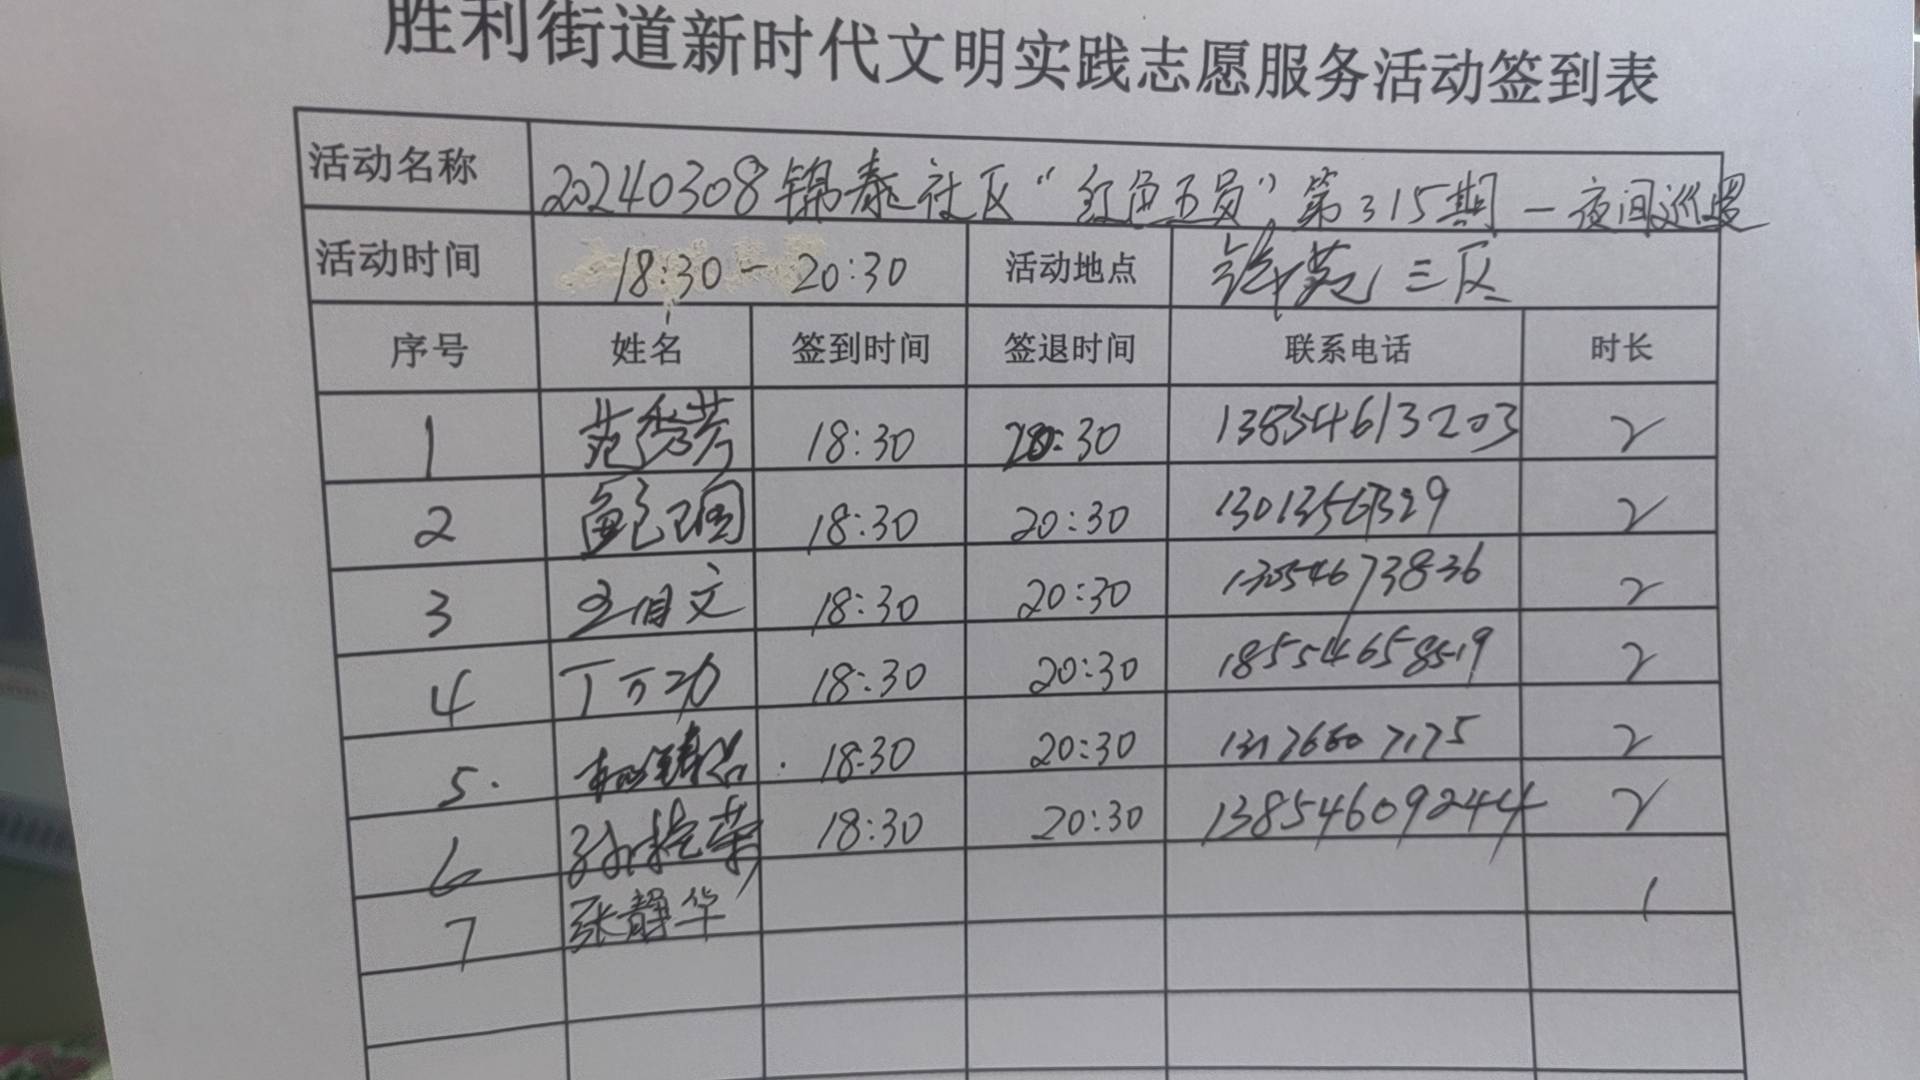 胜利街道新时代文明实践志愿服务活动签到表
活动名称 20240308锦泰社区“红色五员”第315期-夜间巡逻
活动时间 18:30-20:30 活动地点 锦苑三区
序号 姓名 签到时间 签退时间 联系电话 时长
1 范秀芳 18:30 20:30 13854613203 2
2 鲍 18:30 20:30 2
3 文 18:30 20:30 13054673836 2
4 丁万功 18:30 20:30 18554658519 2
5. 18:30 20:30 2
6 孙艳荣 18:30 20:30 13854609244 2
7 张静华 1